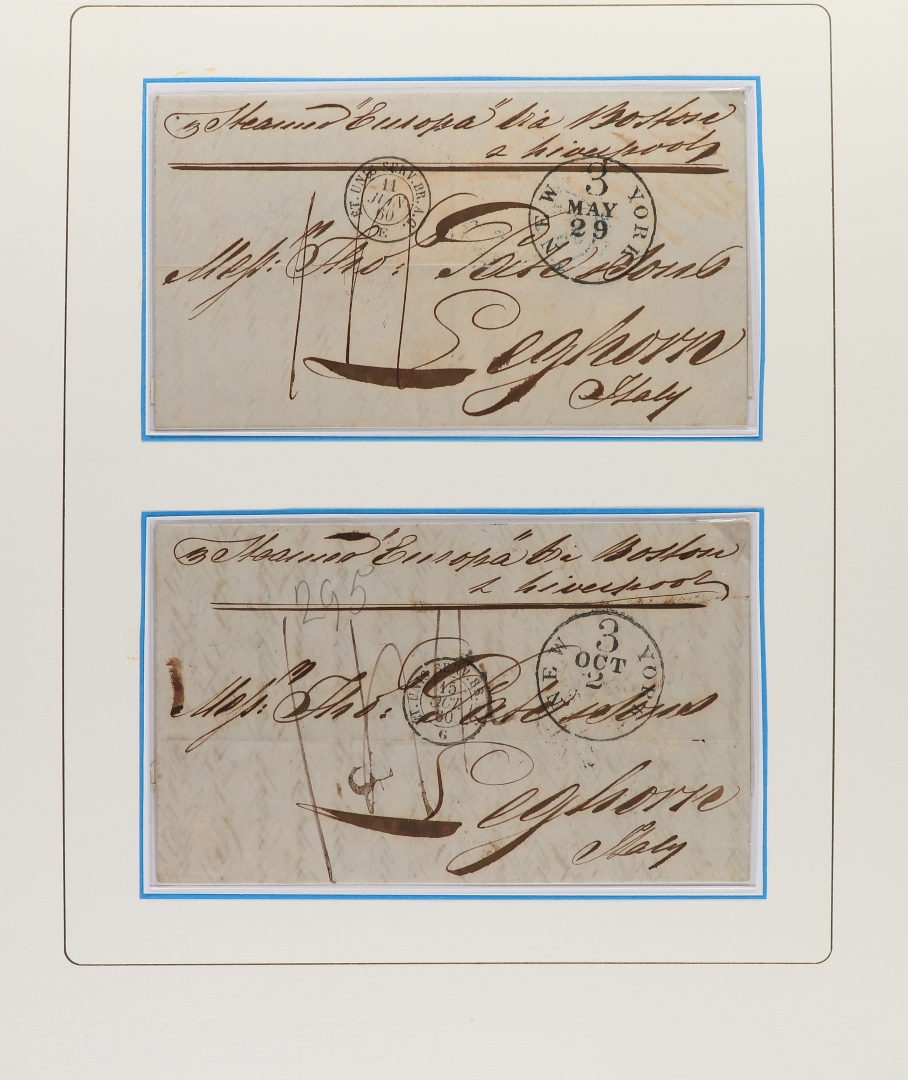 Steamer "Europa" via Boston
& Liverpool
ET. UNIS SERV. BR. A.C.
11
JUIN
60
E
NEW YORK
3
MAY
29
Messrs. Tho:
Leghorn
Italy
Steamer "Europa" via Boston
& Liverpool
295
NEW YORK
3
OCT
2
ET. UNIS SERV. BR.
15
60
G
Messrs. Tho:
Leghorn
Italy